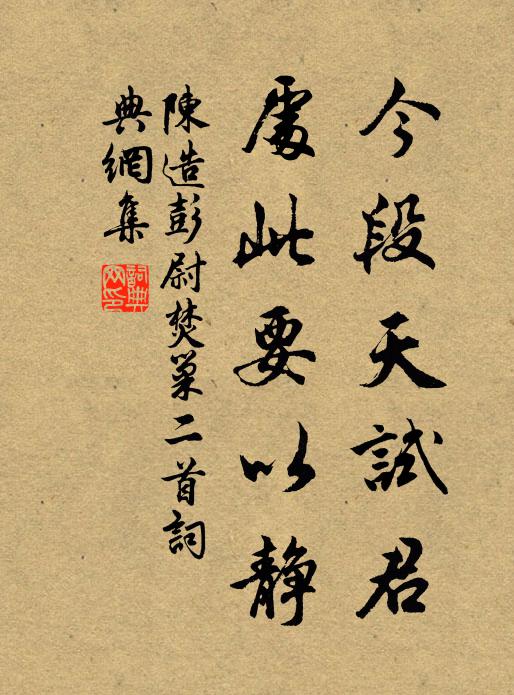 今段天試君
處此要以静
陳造彭尉焚巢二首詞
典網集
詞典网印